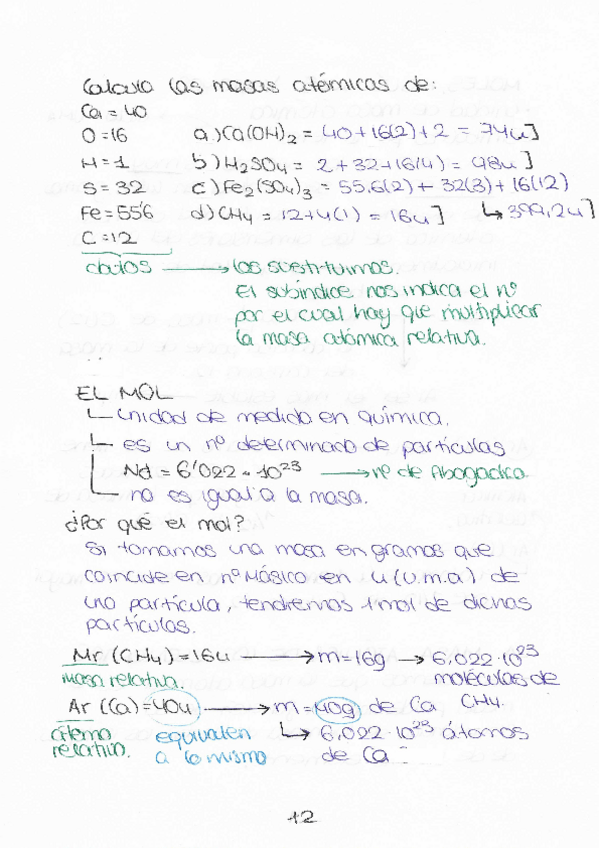 Calcula las masas atómicas de:
Ca = 40
O = 16 a) Ca(OH)₂ = 40 + 16(2) + 2 = 74u]
H = 1 b) H₂SO₄ = 2 + 32 + 16(4) = 98u]
S = 32 c) Fe₂(SO₄)₃ = 55,6(2) + 32(3) + 16(12)
Fe = 55'6 d) CH₄ = 12 + 4(1) = 16u] ↳ 399,2u]
C = 12
datos → los sustituimos.
El subíndice nos indica el nº
por el cual hay que multiplicar
la masa atómica relativa.
EL MOL
unidad de medida en química.
es un nº determinado de partículas
Nd = 6'022 · 10²³ → nº de Abogadica
no es igual a la masa.
¿Por qué el mol?
Si tomamos una masa en gramos que
coincide en nº másico en u (u.m.a) de
una partícula, tendremos 1 mol de dichas
partículas.
Mr (CH₄) = 16u → m = 16g → 6,022 · 10²³
masa relativa. moléculas de
CH₄.
Ar (Ca) = 40u → m = 40g de Ca
átomo equivalen ↳ 6,022 · 10²³ átomos
relativa. a lo mismo de Ca
12